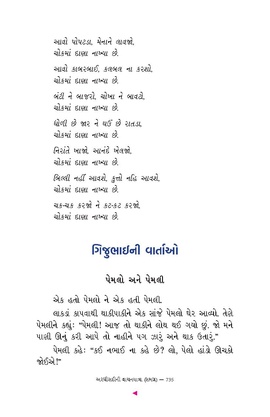 આવો પોપટડા, મેનાને લાવજો,
ચોકમાં દાણા નાખ્યા છે.
આવો કાબરબાઈ, કલબલ ના કરશો,
ચોકમાં દાણા નાખ્યા છે.
બંટી ને બાજરો, ચોખા ને બાવટો,
ચોકમાં દાણા નાખ્યા છે.
ધોળી છે જાર ને ઘઉં છે રાતડા,
ચોકમાં દાણા નાખ્યા છે.
નિરાંતે ખાજો, આનંદે ખેલજો,
ચોકમાં દાણા નાખ્યા છે.
બિલ્લી નહીં આવશે, કુત્તો નહિ આવશે,
ચોકમાં દાણા નાખ્યા છે.
ચક-ચક કરજો ને કટ-કટ કરજો,
ચોકમાં દાણા નાખ્યા છે.
ગિજુભાઈની વાર્તાઓ
પેમલો અને પેમલી
એક હતો પેમલો ને એક હતી પેમલી.
લાકડાં કાપવાથી થાકીપાકીને એક સાંજે પેમલો ઘેર આવ્યો. તેણે
પેમલીને કહ્યું: “પેમલી! આજ તો થાકીને લોથ થઈ ગયો છું. જો મને
પાણી ઊનું કરી આપે તો નાહીને પગ ઝારું અને થાક ઉતારું.”
પેમલી કહે: “કઈ નભાઈ ના કહે છે? લો, પેલો હાંડો ઊંચકો
જોઈએ!”
અરધી સદીની વાચનયાત્રા — 735